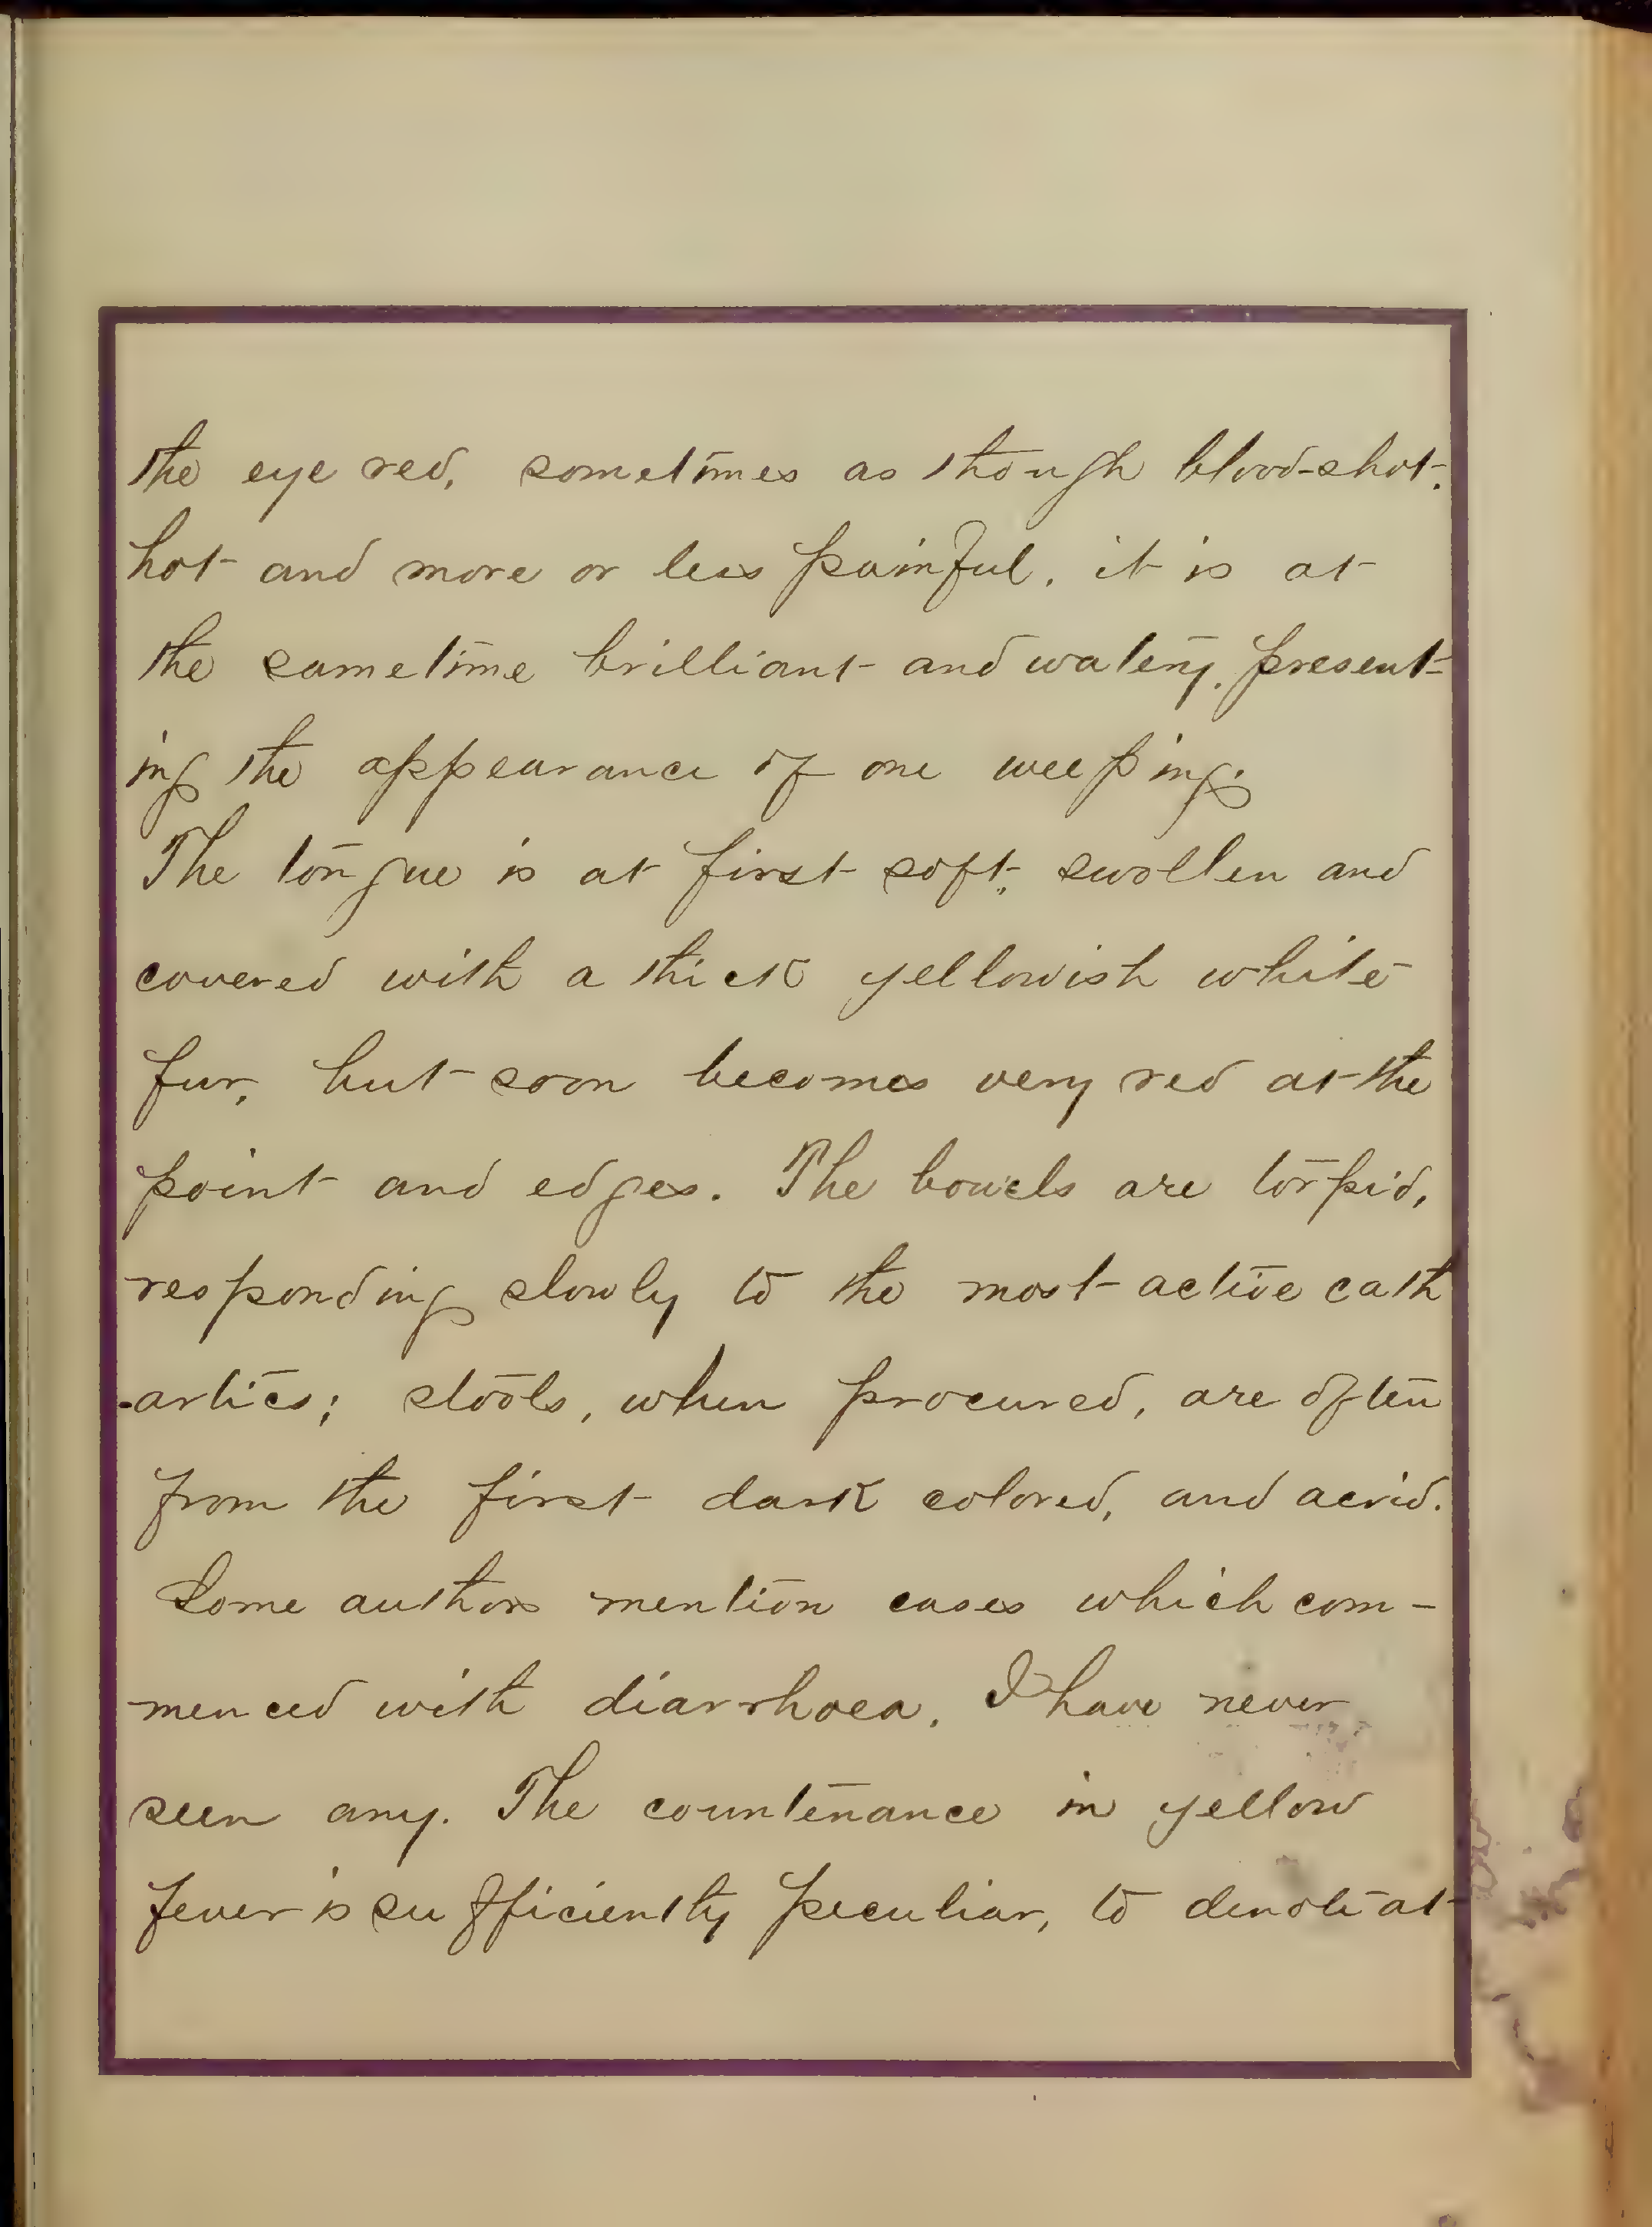 the eye red, sometimes as though blood-shot,
hot and more or less painful, it is at
the sametime brilliant and watery, present-
ing the appearance of one weeping.
The tongue is at first soft, swollen and
covered with a thick yellowish white
fur, but soon becomes very red at the
point and edges. The bowels are torpid,
responding slowly to the most active cath
-artics; stools, when procured, are often
from the first dark colored, and acrid.
Some authors mention cases which com-
menced with diarrhoea, I have never
seen any. The countenance in yellow
fever is sufficiently peculiar, to denote at